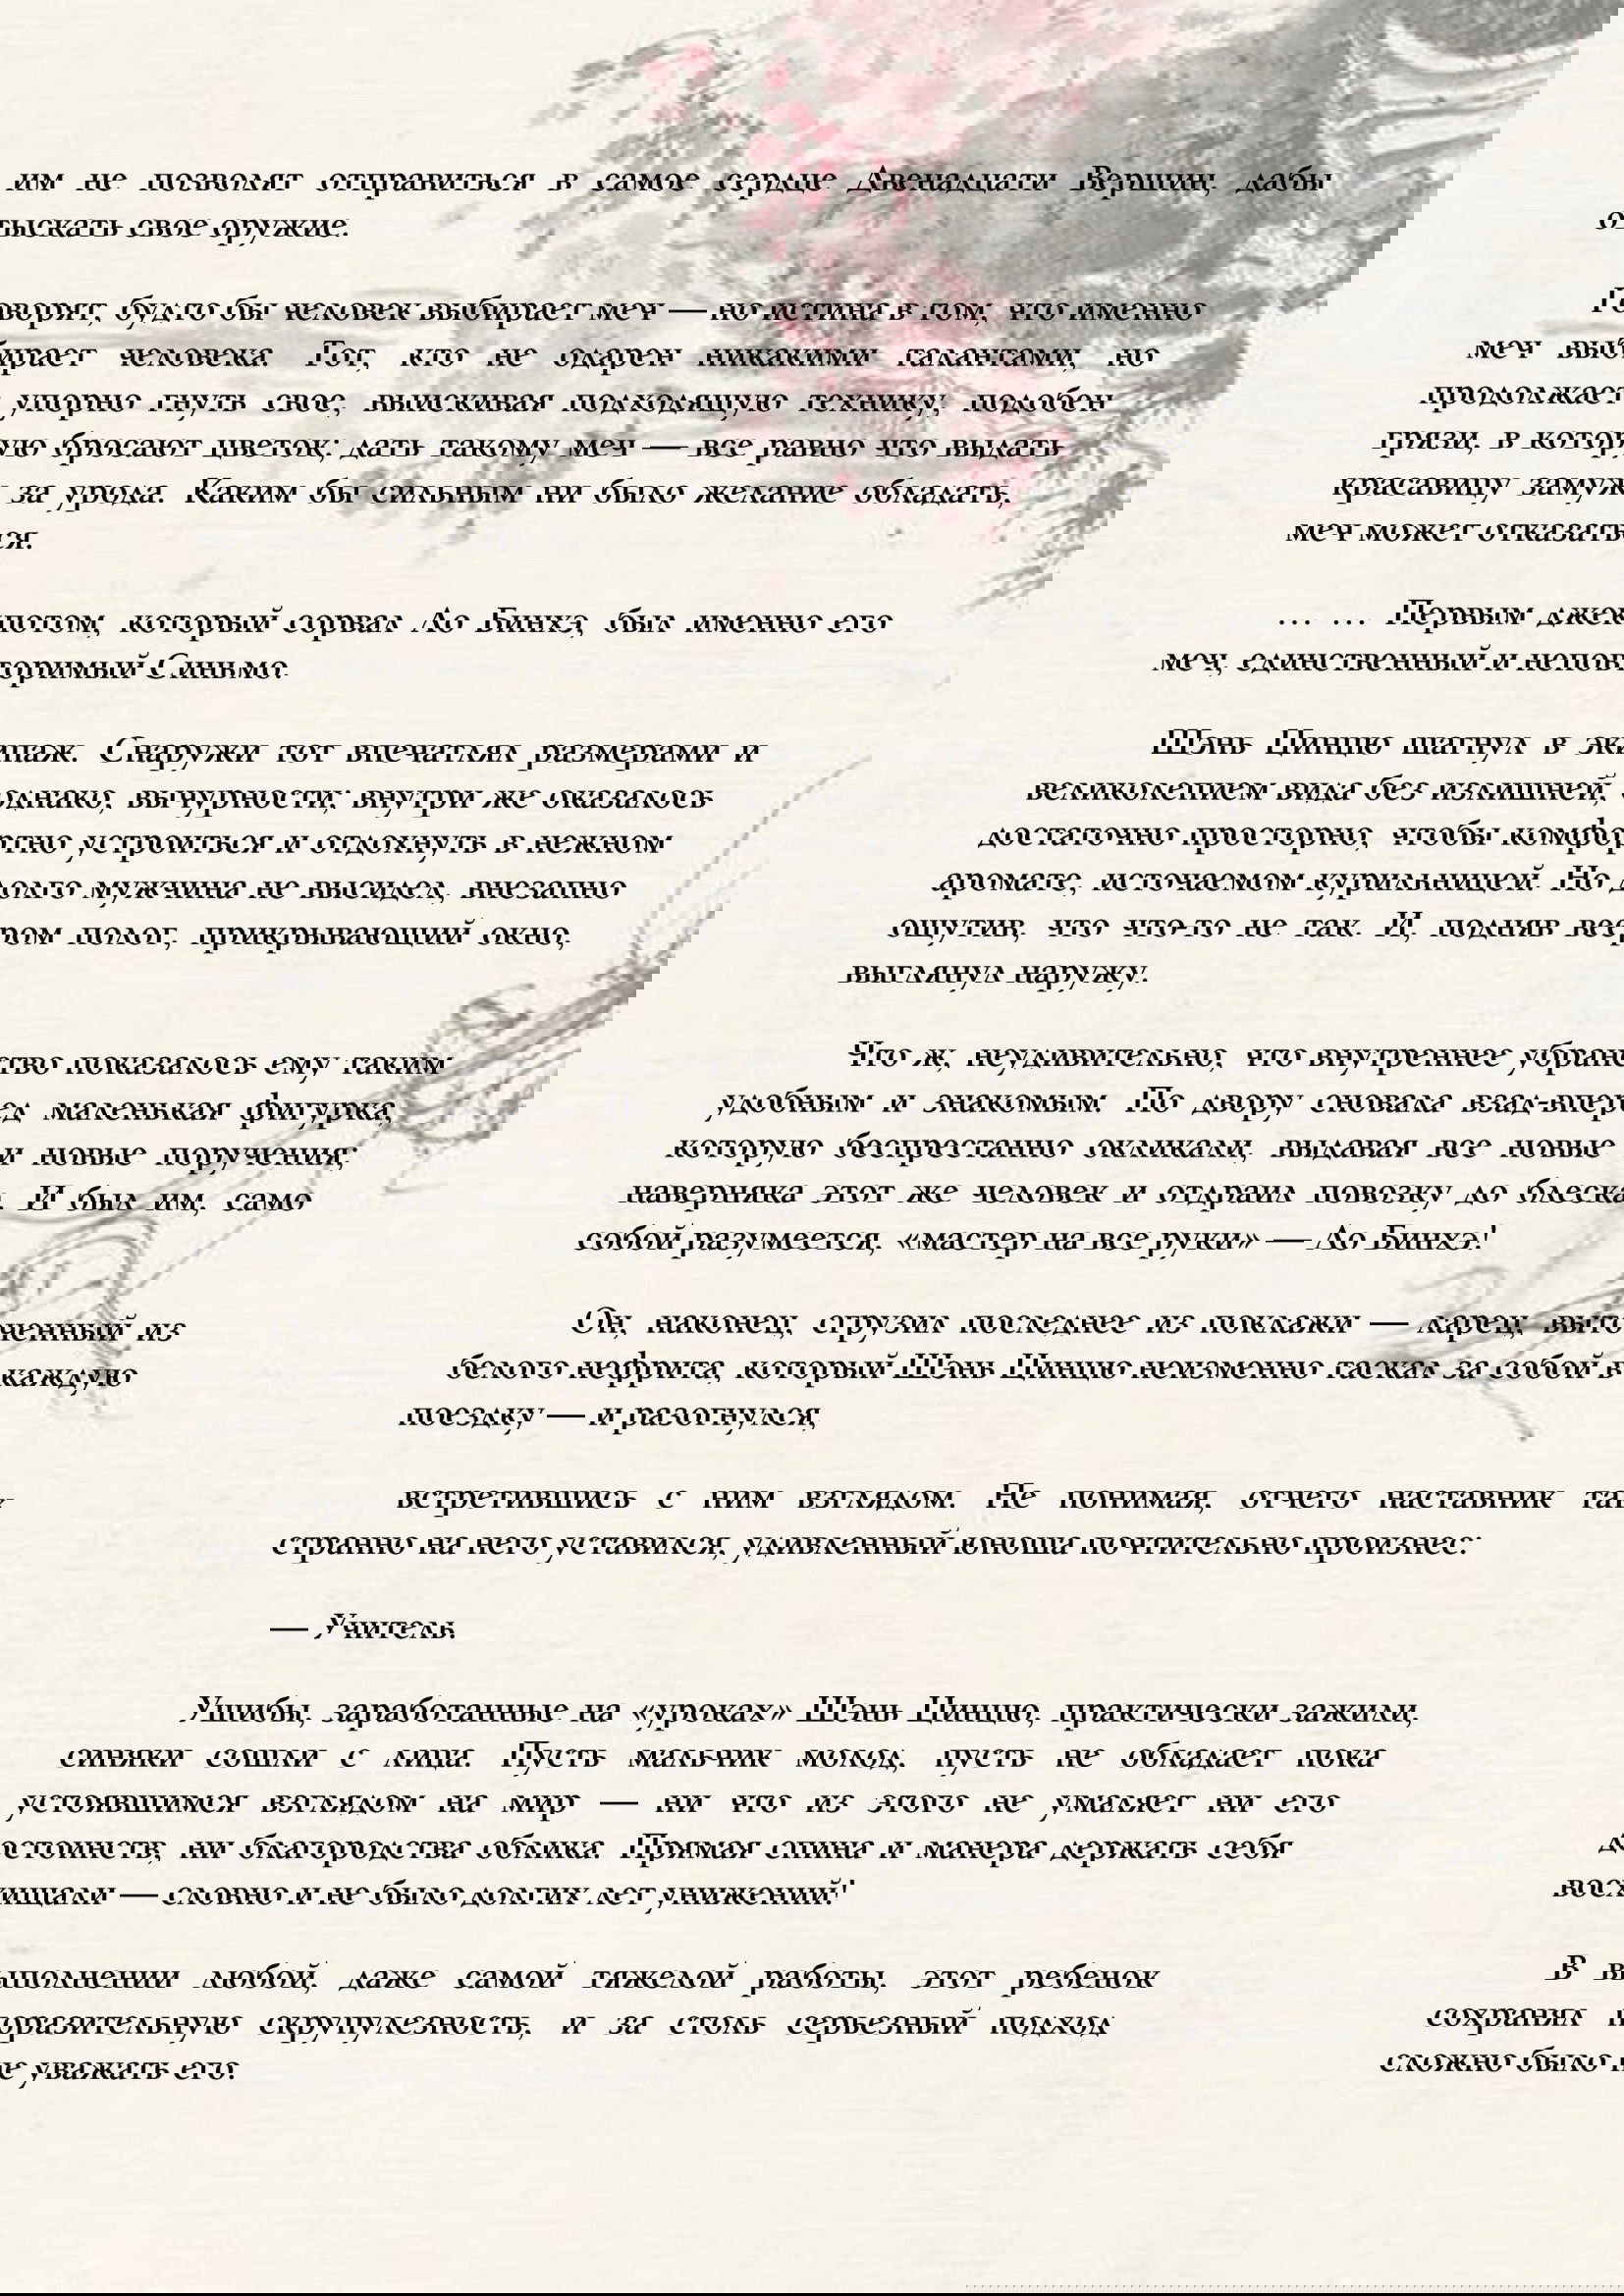 им не позволят отправиться в самое сердце Двенадцати Вершин, дабы
отыскать свое оружие.
Говорят, будто бы человек выбирает меч — но истина в том, что именно
меч выбирает человека. Тот, кто не одарен никакими талантами, но
продолжает упорно гнуть свое, выискивая подходящую технику, подобен
грязи, в которую бросают цветок; дать такому меч — все равно что выдать
красавицу замуж за урода. Каким бы сильным ни было желание обладать,
меч может отказаться.
… … Первым джекпотом, который сорвал Ло Бинхэ, был именно его
меч, единственный и неповторимый Синьмо.
Шэнь Цинцю шагнул в экипаж. Снаружи тот впечатлял размерами и
великолепием вида без излишней, однако, вычурности; внутри же оказалось
достаточно просторно, чтобы комфортно устроиться и отдохнуть в нежном
аромате, источаемом курильницей. Но долго мужчина не высидел, внезапно
ощутив, что что-то не так. И, подняв веером полог, прикрывающий окно,
выглянул наружу.
Что ж, неудивительно, что внутреннее убранство показалось ему таким
удобным и знакомым. По двору сновала взад-вперед маленькая фигурка,
которую беспрестанно окликали, выдавая все новые и новые поручения;
наверняка этот же человек и отдраил повозку до блеска. И был им, само
собой разумеется, «мастер на все руки» — Ло Бинхэ!
Он, наконец, сгрузил последнее из поклажи — ларец, выточенный из
белого нефрита, который Шэнь Цинцю неизменно таскал за собой в каждую
поездку — и разогнулся,
встретившись с ним взглядом. Не понимая, отчего наставник так
странно на него уставился, удивленный юноша почтительно произнес:
— Учитель.
Ушибы, заработанные на «уроках» Шэнь Цинцю, практически зажили,
синяки сошли с лица. Пусть мальчик молод, пусть не обладает пока
устоявшимся взглядом на мир — ни что из этого не умаляет ни его
достоинств, ни благородства облика. Прямая спина и манера держать себя
восхищали — словно и не было долгих лет унижений!
В выполнении любой, даже самой тяжелой работы, этот ребенок
сохранял поразительную скрупулезность, и за столь серьезный подход
сложно было не уважать его.